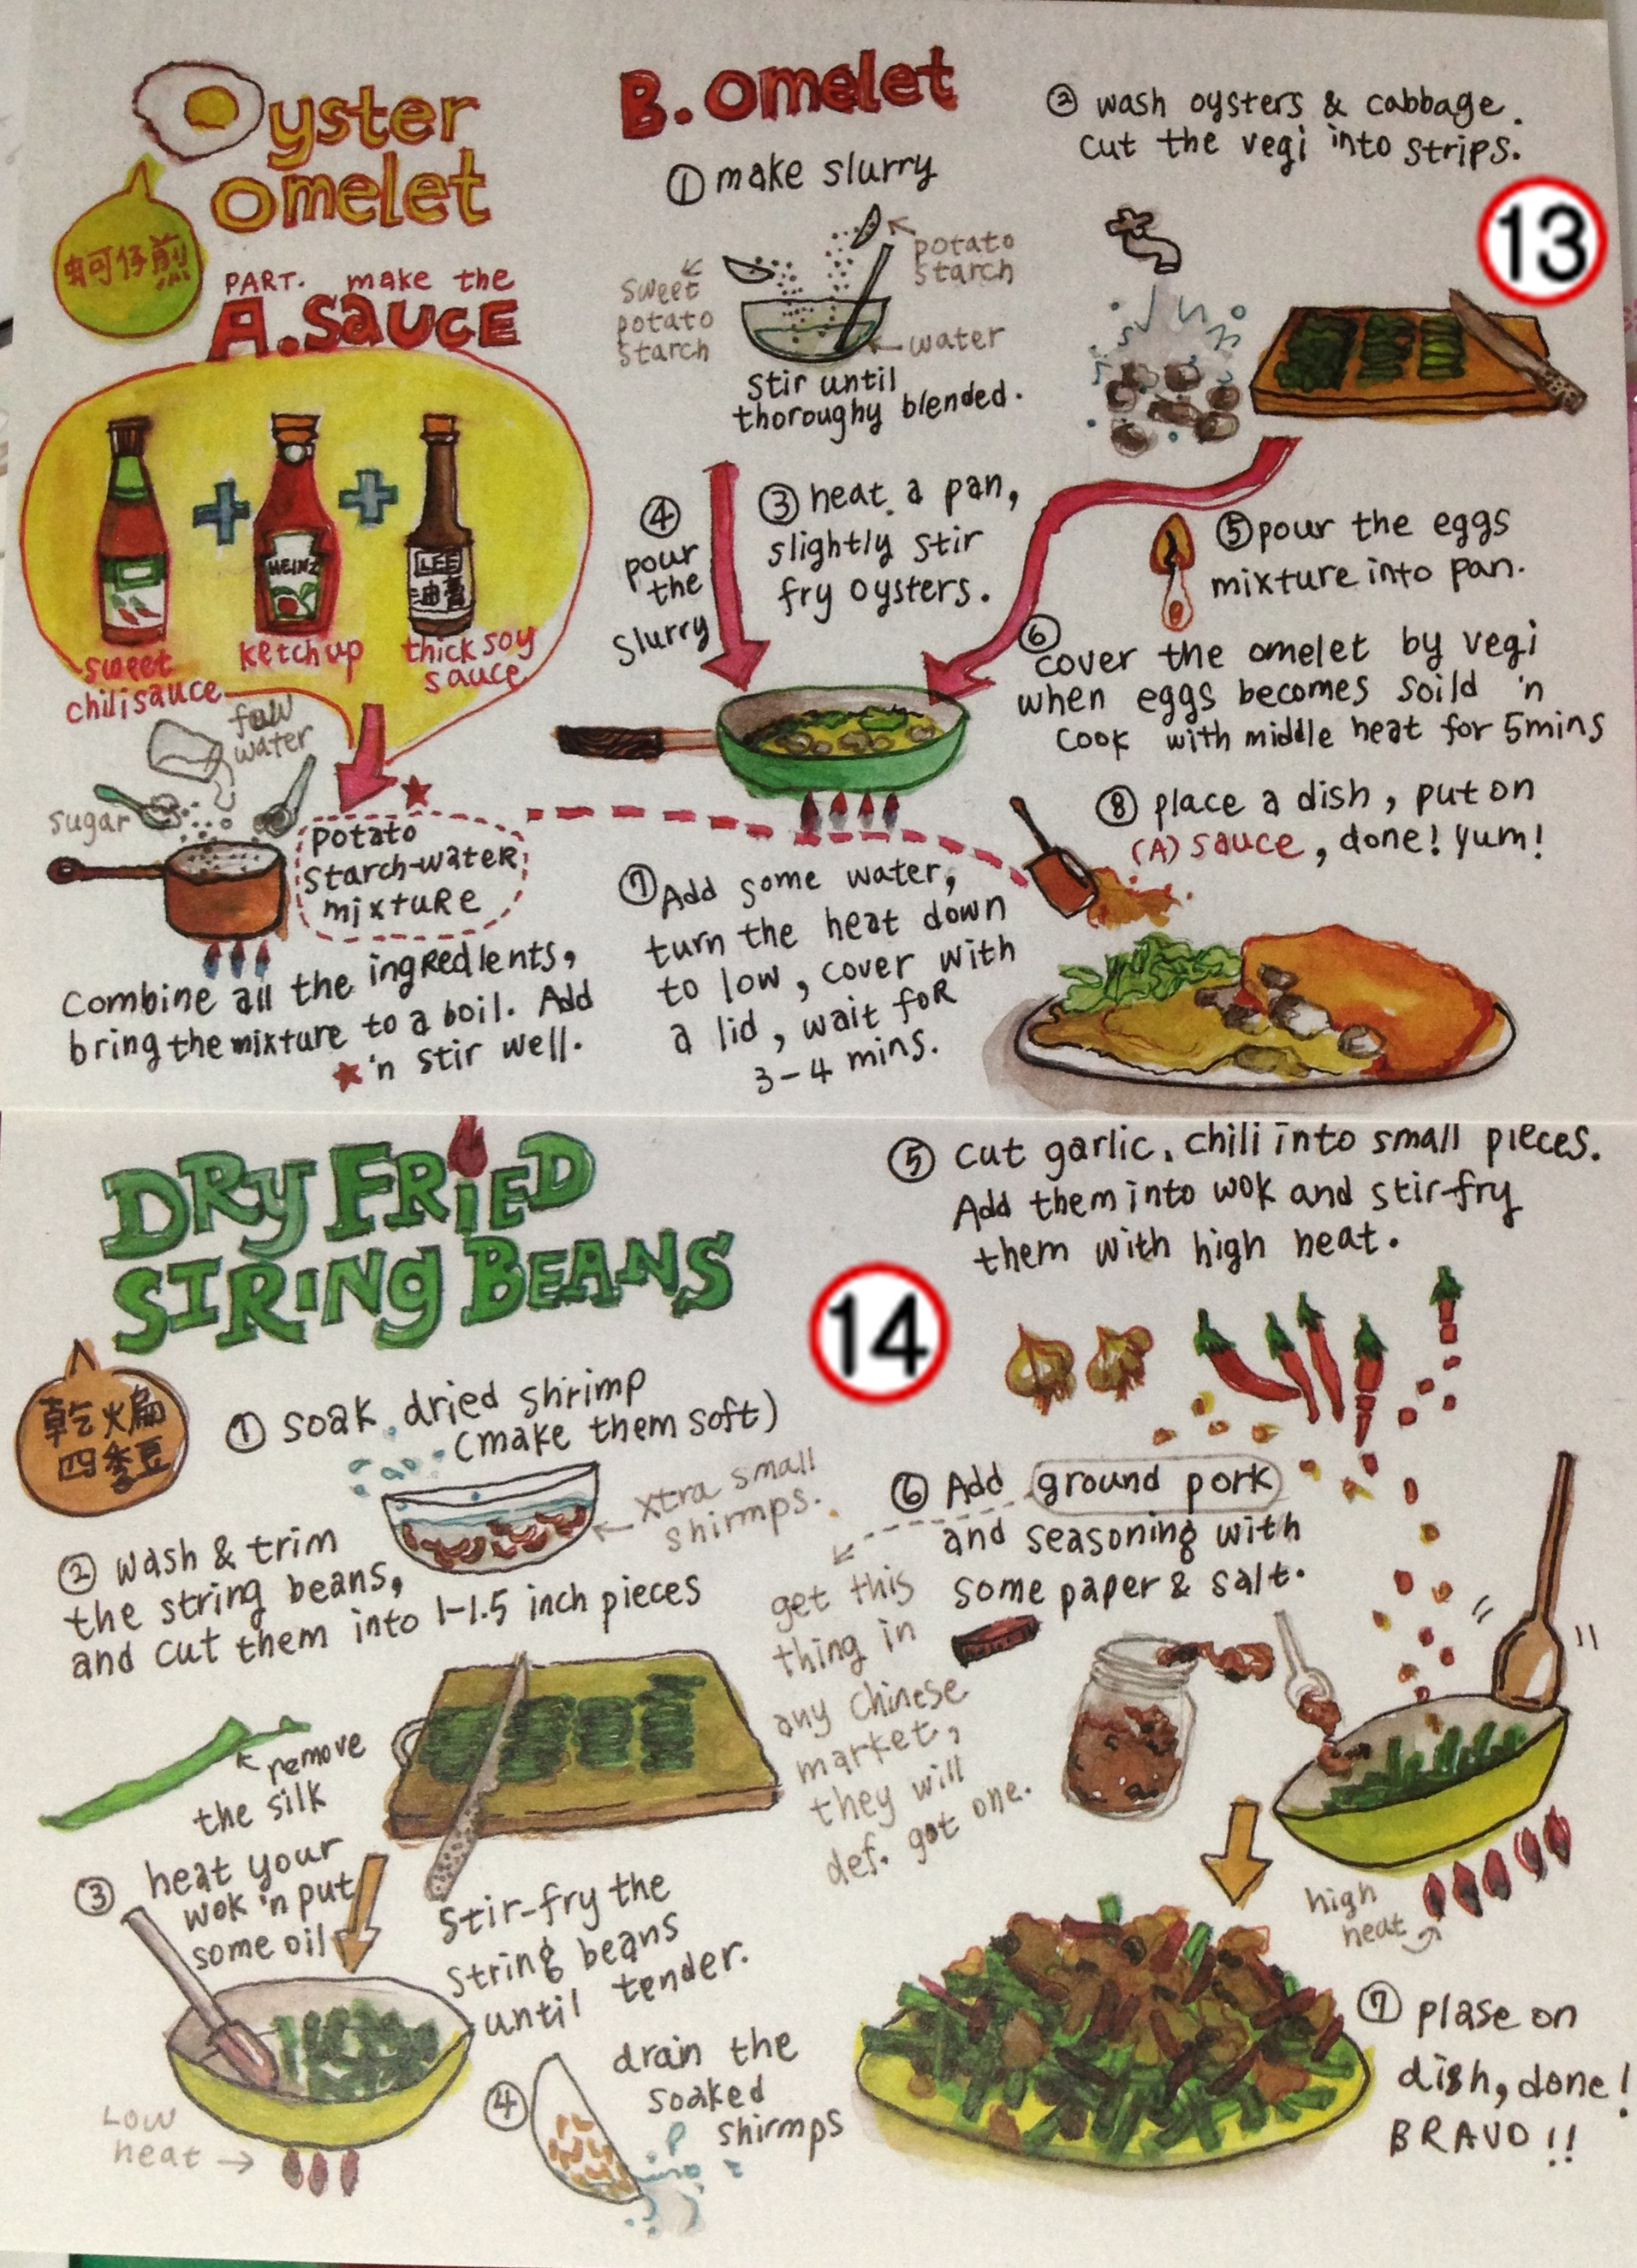 Oyster
omelet
蚵仔煎
PART. make the
A. SAUCE
HEINZ
LEE
油膏
sweet
chili sauce
ketchup
thick soy
sauce
few
water
sugar
potato
starch-water
mixture
Combine all the ingredients,
bring the mixture to a boil. Add
★'n stir well.
B. omelet
① make slurry
sweet
potato
starch
potato
starch
water
stir until
thoroughy blended.
② wash oysters & cabbage.
cut the vegi into strips.
13
③ heat a pan,
slightly stir
fry oysters.
④
pour
the
slurry
⑤ pour the eggs
mixture into pan.
⑥
cover the omelet by vegi
when eggs becomes soild 'n
cook with middle heat for 5mins
⑦ Add some water,
turn the heat down
to low, cover with
a lid, wait for
3-4 mins.
⑧ place a dish, put on
(A) sauce, done! yum!
DRY FRiED
STRING BEANS
14
乾煸
四季豆
① soak dried shrimp
(make them soft)
xtra small
shirmps.
② wash & trim
the string beans,
and cut them into 1-1.5 inch pieces
remove
the silk
③ heat your
wok 'n put
some oil
Stir-fry the
string beans
until tender.
Low
heat →
④ drain the
soaked
shirmps
⑤ cut garlic, chili into small pieces.
Add them into wok and stir-fry
them with high heat.
⑥ Add ground pork
and seasoning with
some paper & salt.
get this
thing in
any chinese
market,
they will
def. got one.
high
heat
⑦ plase on
dish, done!
BRAVO!!